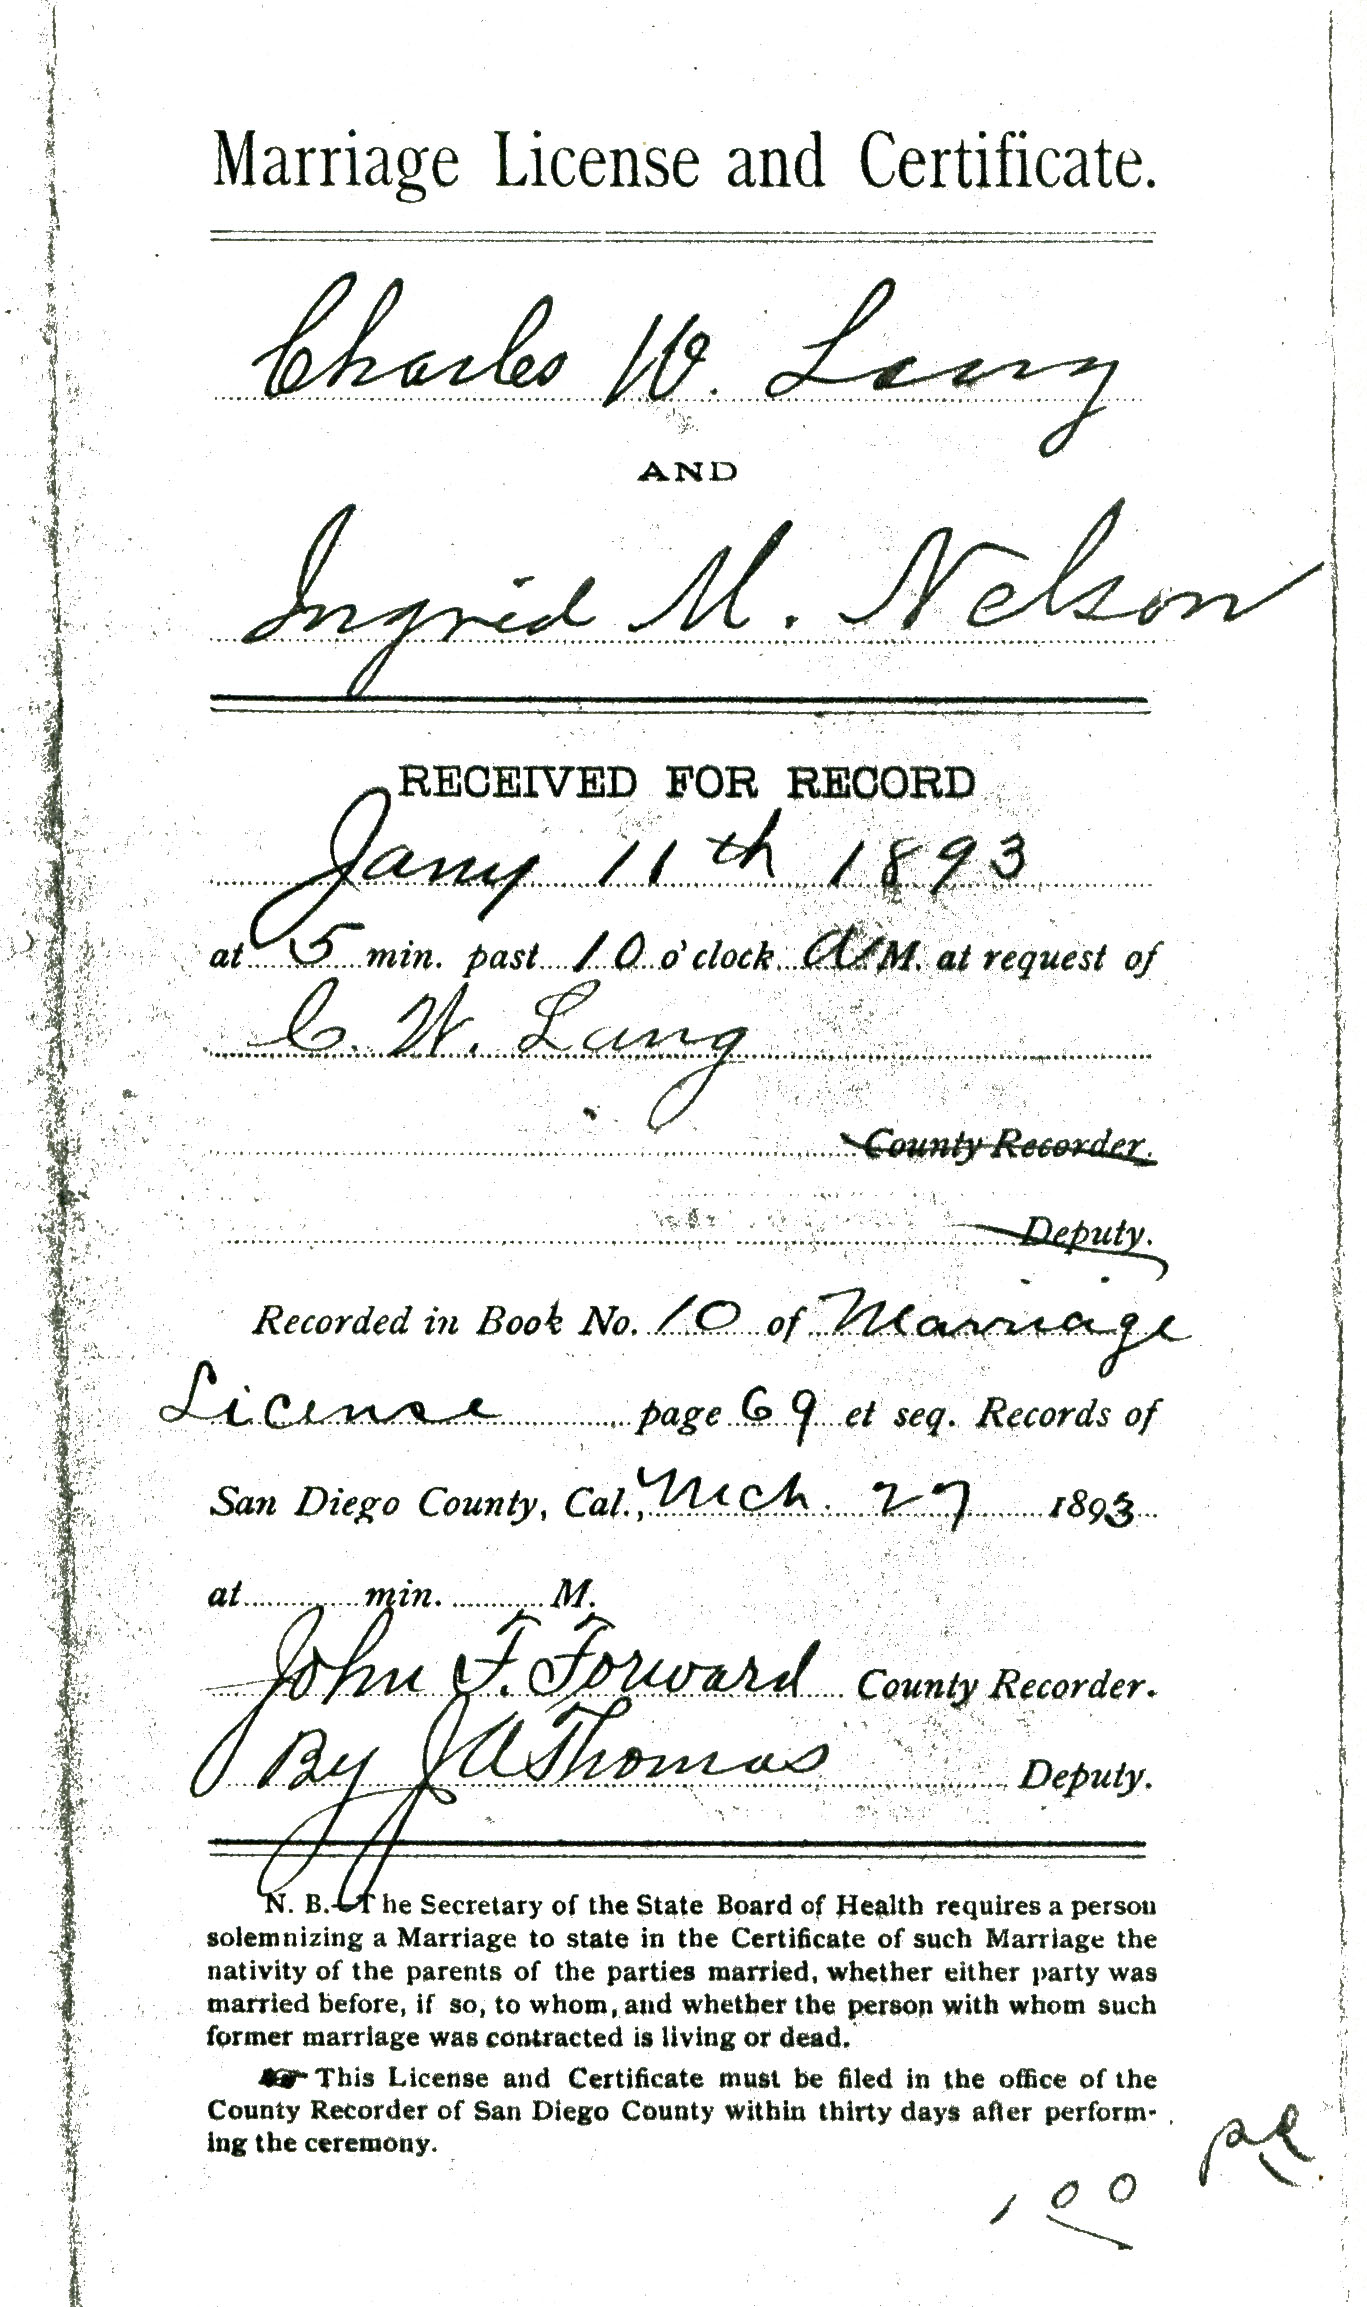 Marriage License and Certificate.
Charles W. Lang
AND
Ingrid M. Nelson
RECEIVED FOR RECORD
Jany 11th 1893
at 5 min. past 10 o'clock A M. at request of
C. W. Lang
County Recorder.
Deputy.
Recorded in Book No. 10 of Marriage
License page 69 et seq. Records of
San Diego County, Cal., Mch. 27 1893
at min. M.
John F. Forward County Recorder.
By J A Thomas Deputy.
N. B.—The Secretary of the State Board of Health requires a person
solemnizing a Marriage to state in the Certificate of such Marriage the
nativity of the parents of the parties married, whether either party was
married before, if so, to whom, and whether the person with whom such
former marriage was contracted is living or dead.
☞ This License and Certificate must be filed in the office of the
County Recorder of San Diego County within thirty days after perform-
ing the ceremony.
100